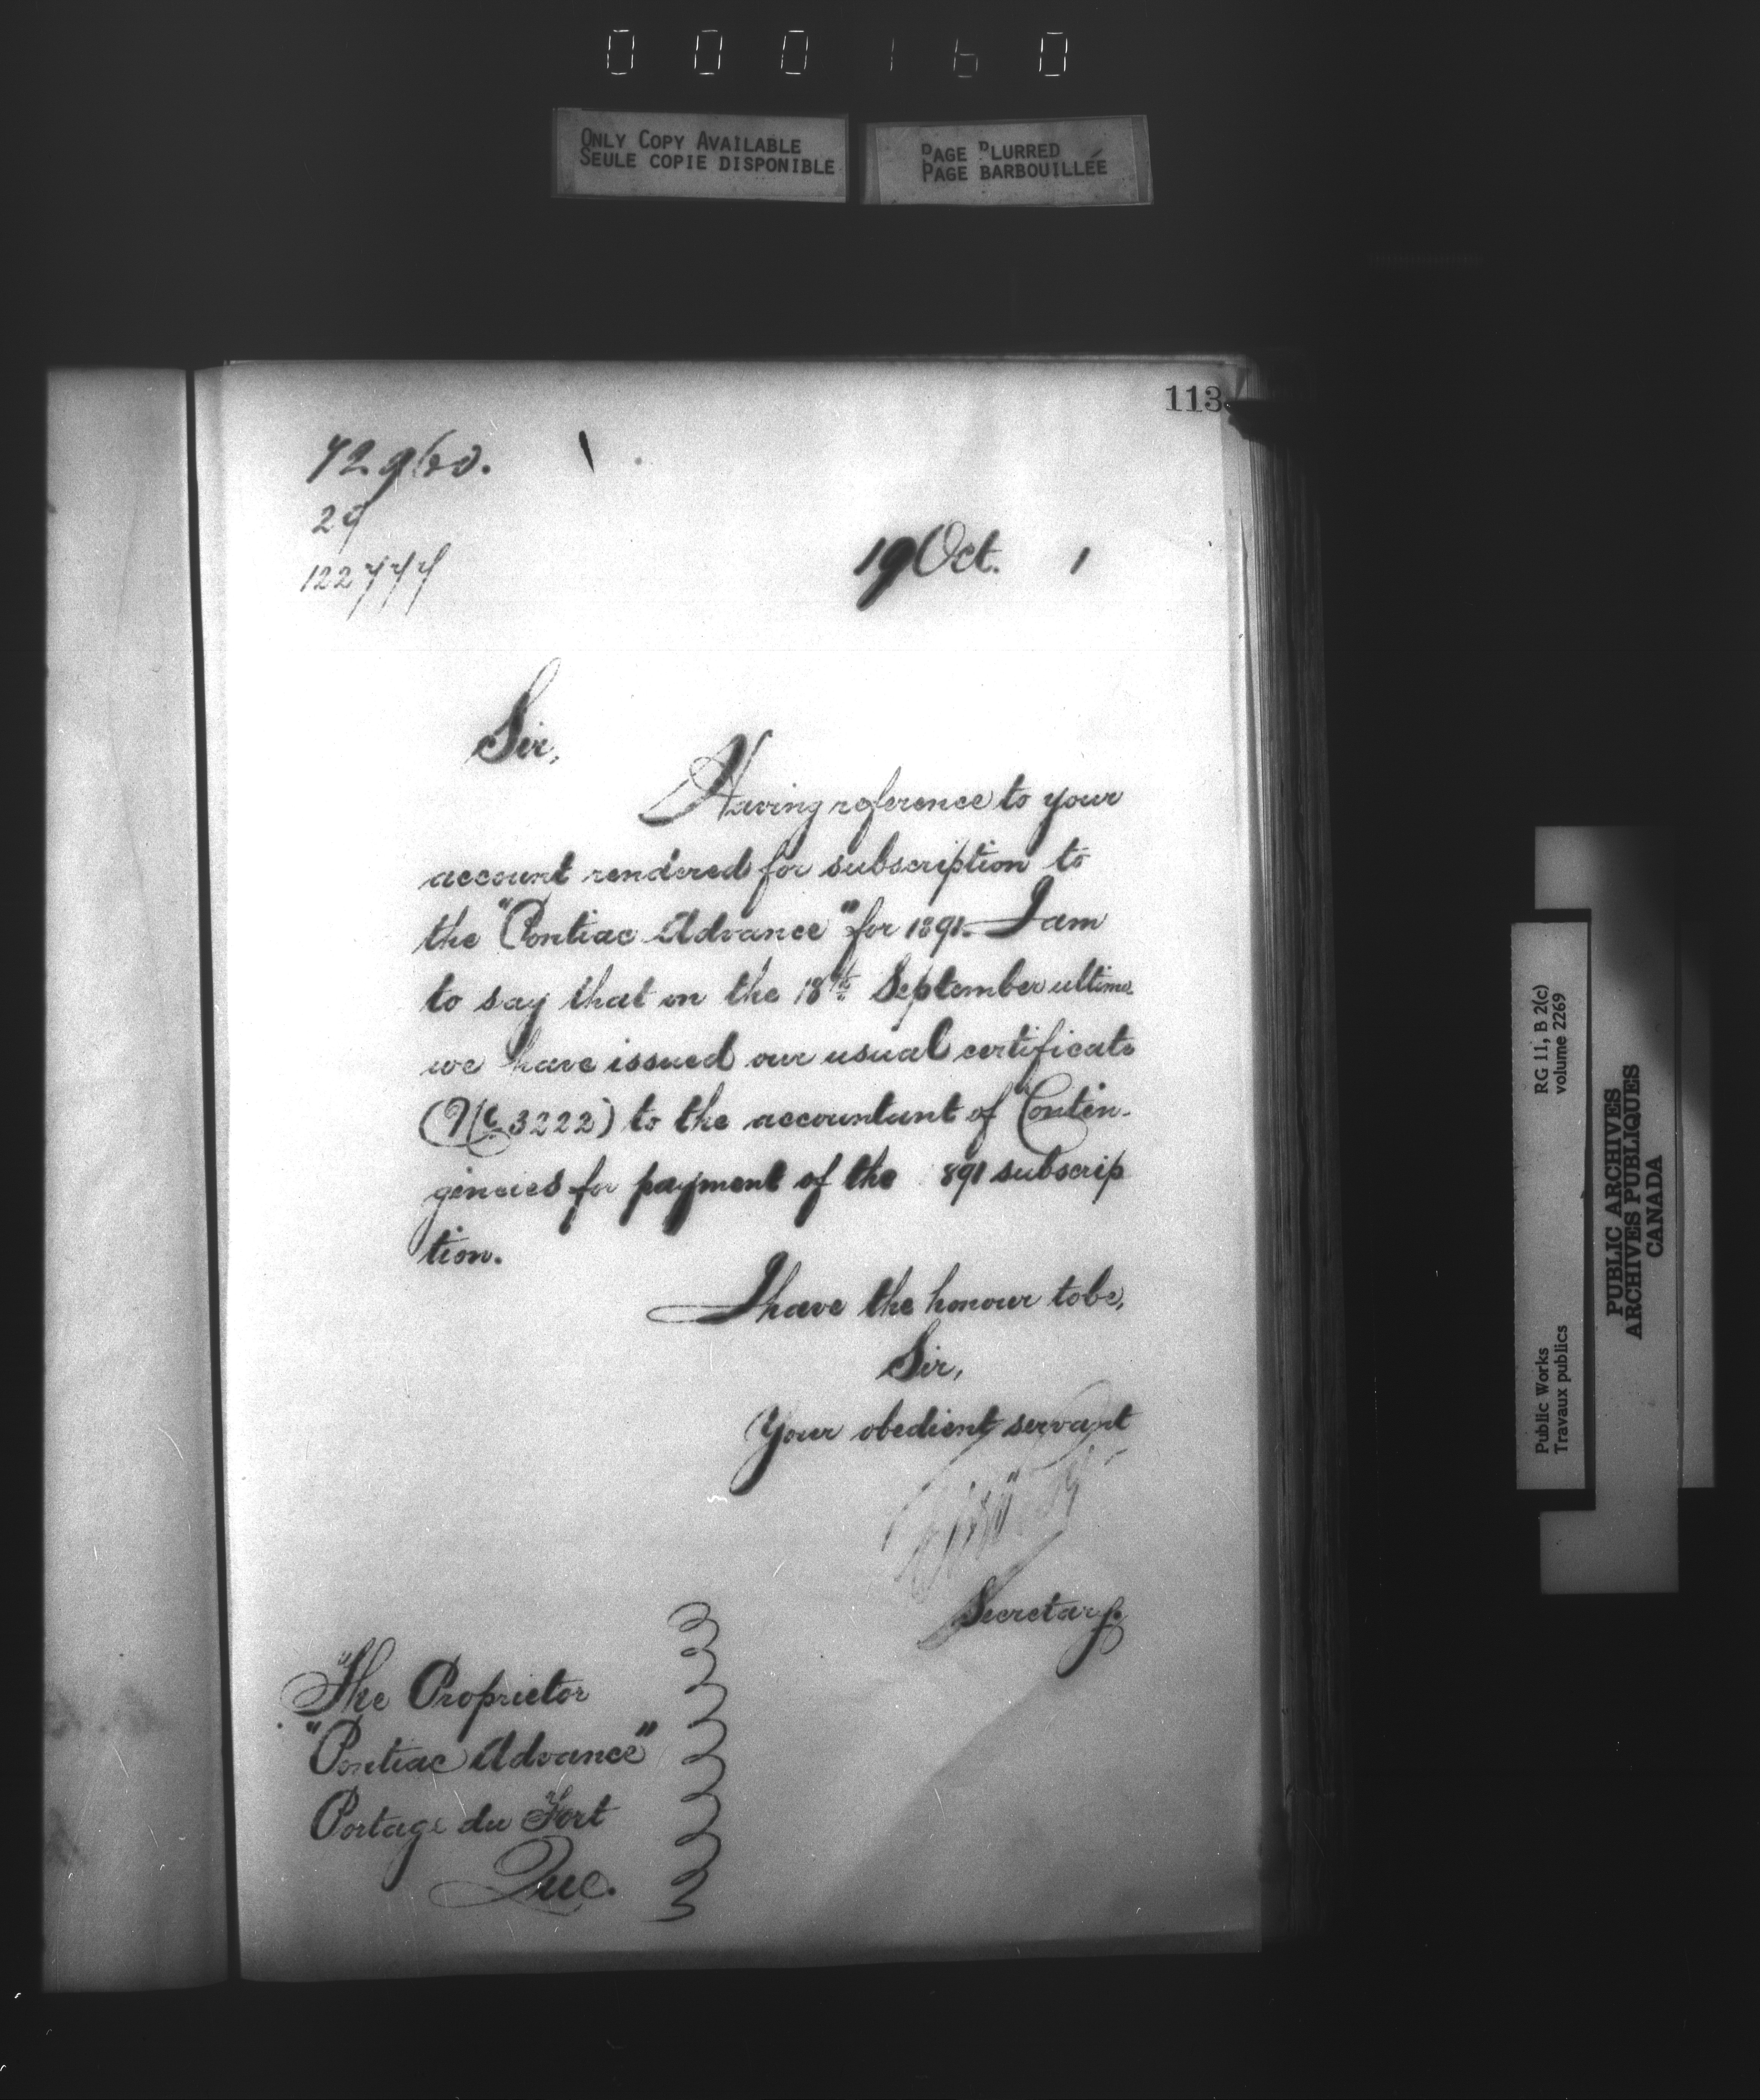 000160
ONLY COPY AVAILABLE
SEULE COPIE DISPONIBLE
PAGE BLURRED
PAGE BARBOUILLÉE
113
72960.
29
122777
19 Oct. 1
Sir,
Having reference to your
account rendered for subscription to
the "Pontiac Advance" for 1891. I am
to say that on the 18th September ultimo
we have issued our usual certificate
(No 3222) to the accountant of Contin-
gencies for payment of the 891 subscrip
tion.
I have the honour to be,
Sir,
Your obedient servant
Secretary.
The Proprietor
"Pontiac Advance"
Portage du Fort
Que.
RG 11, B 2(c)
volume 2269
Public Works
Travaux publics
PUBLIC ARCHIVES
ARCHIVES PUBLIQUES
CANADA